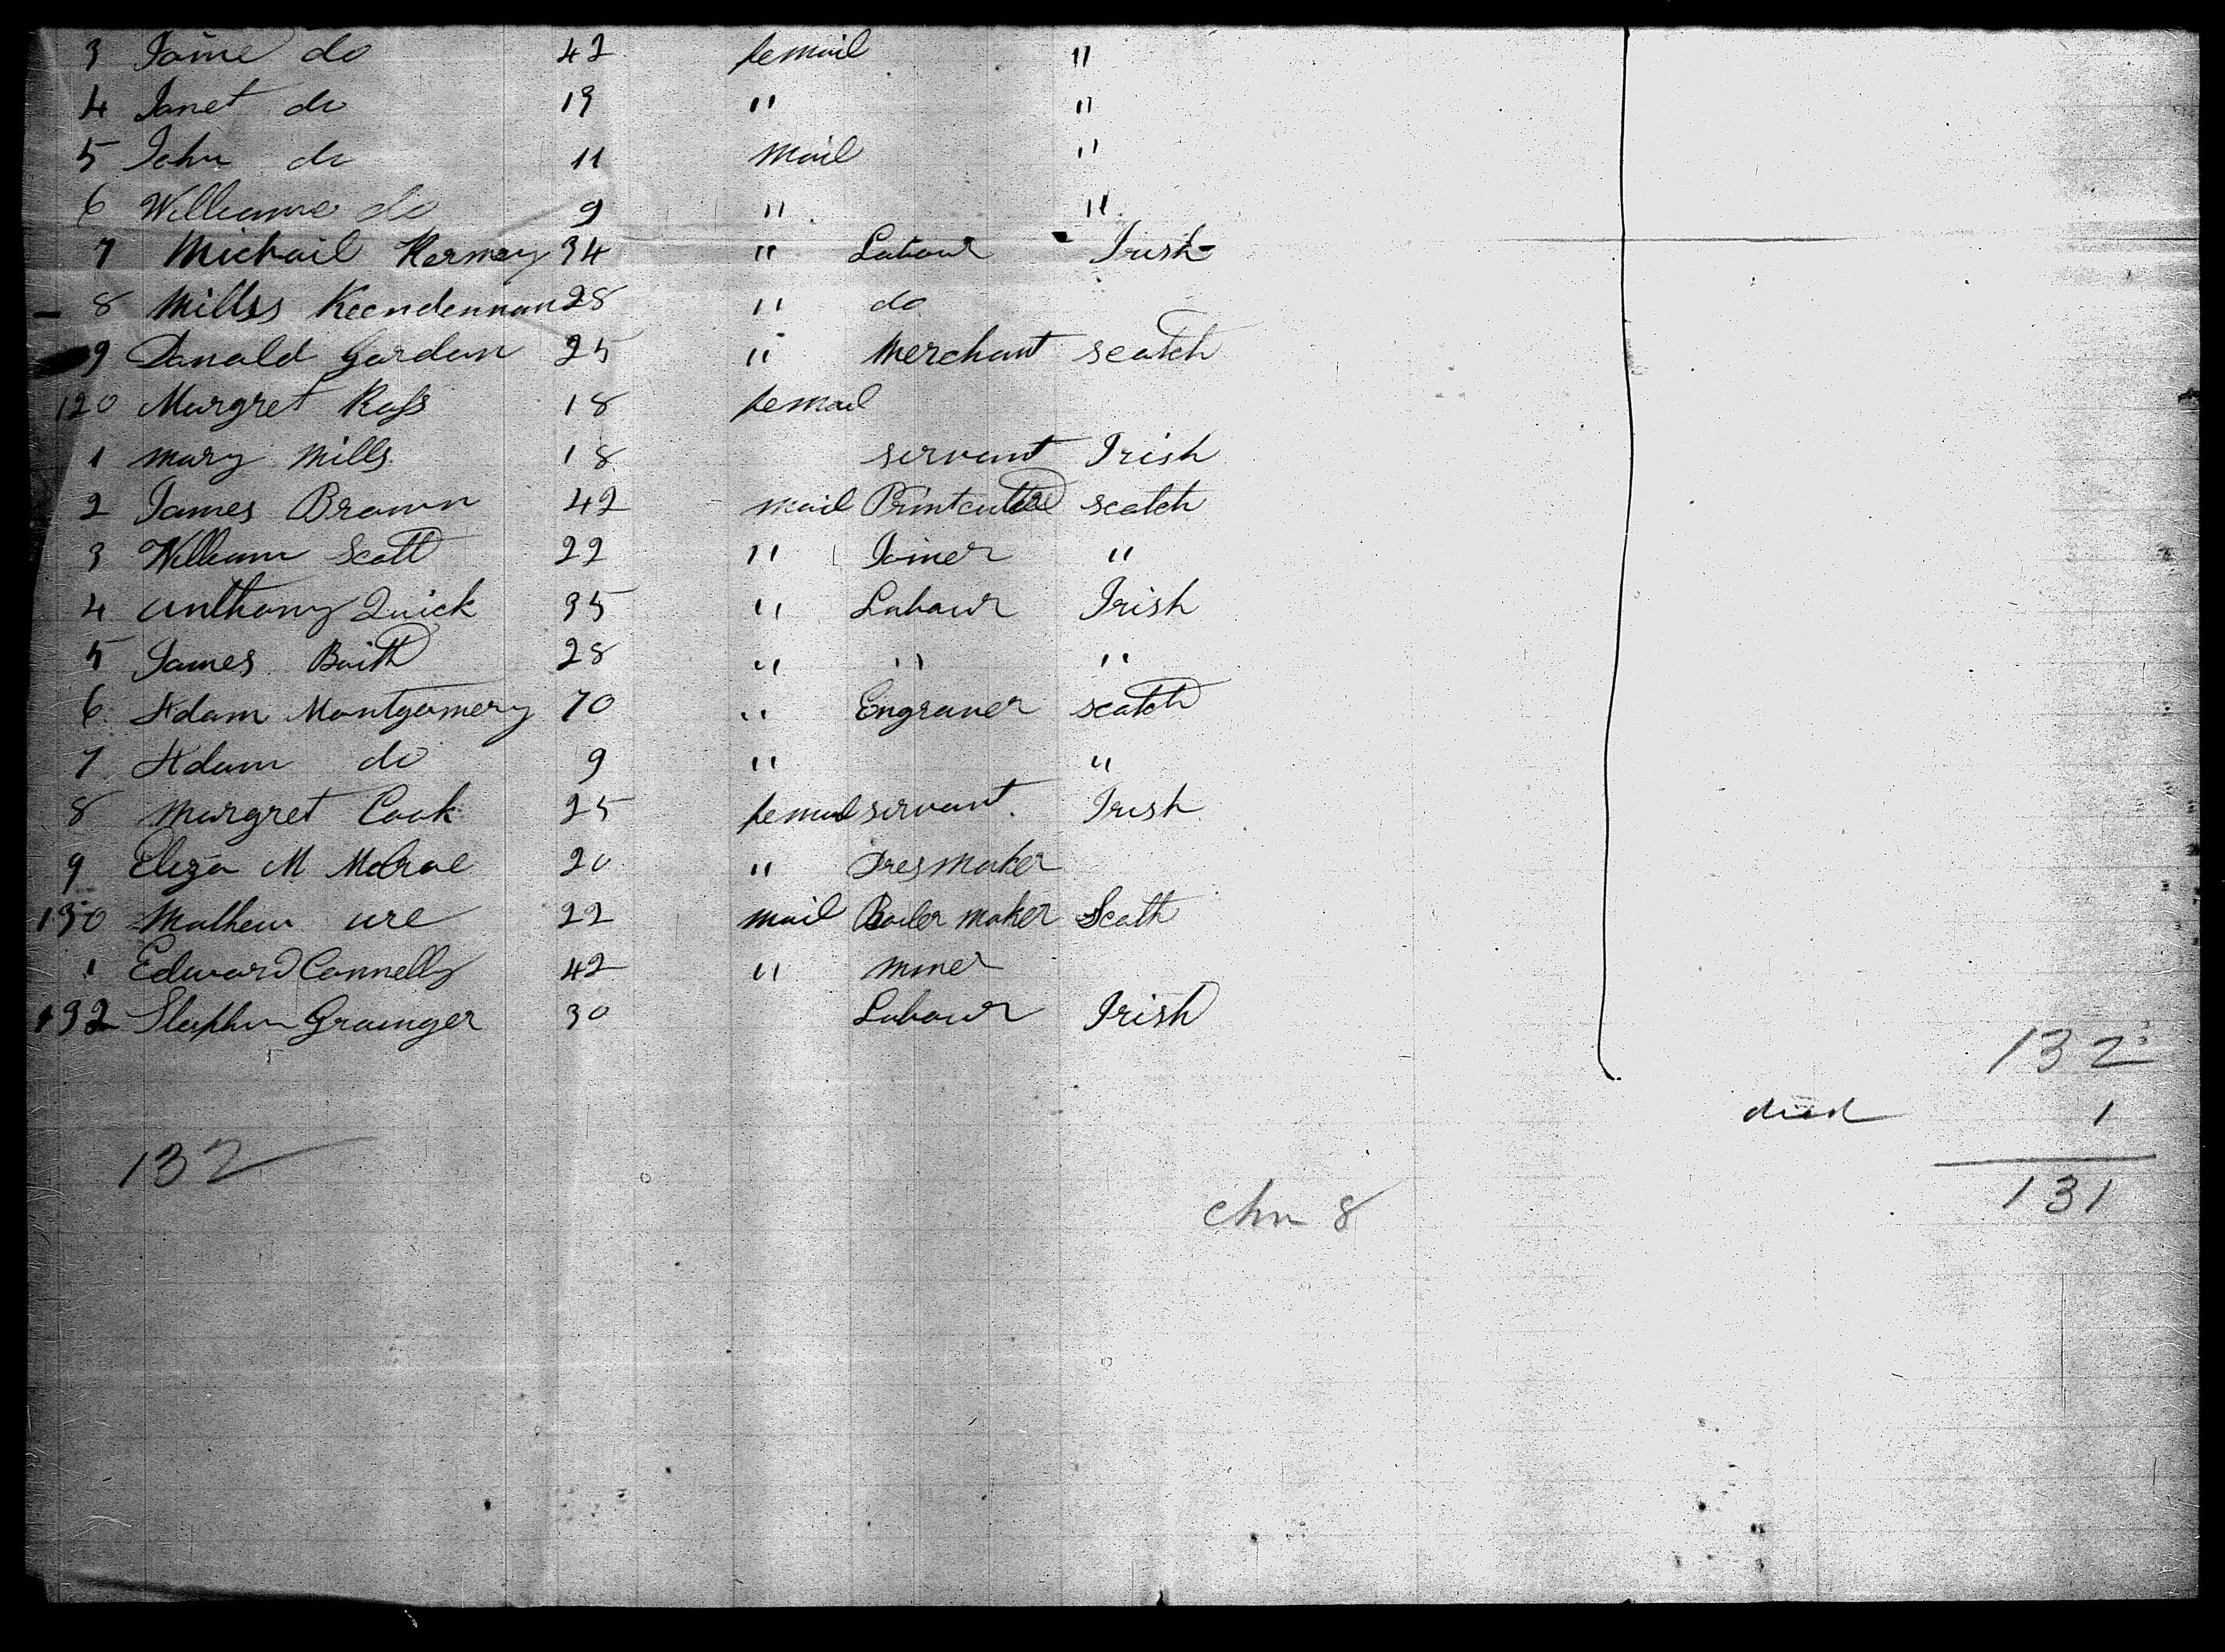 3 Jaine do 42 femail "
4 Janet do 19 " "
5 John do 11 Mail "
6 Williame do 9 " "
7 Michail 34 " Labour Irish
8 Millss Keendennan 28 " do
9 Donald Gordon 25 " Merchant scotch
120 Margret Ross 18 femail
1 Mary Mills 18 servant Irish
2 James Brown 42 mail Printcutter scotch
3 William Scott 22 " Joiner "
4 Anthony Quick 35 " Labour Irish
5 James 28 " " "
6 Adam Montgomery 70 " Engraver scotch
7 Adam do 9 " "
8 Margret Cook 25 femail servant Irish
9 Eliza M 20 " Dresmaker
130 Mathew ure 22 mail Boiler maker Scoth
1 Edward Connelly 42 " Miner
132 Stephen Grainger 30 Labour Irish
132
died 1
132
131
chn 8